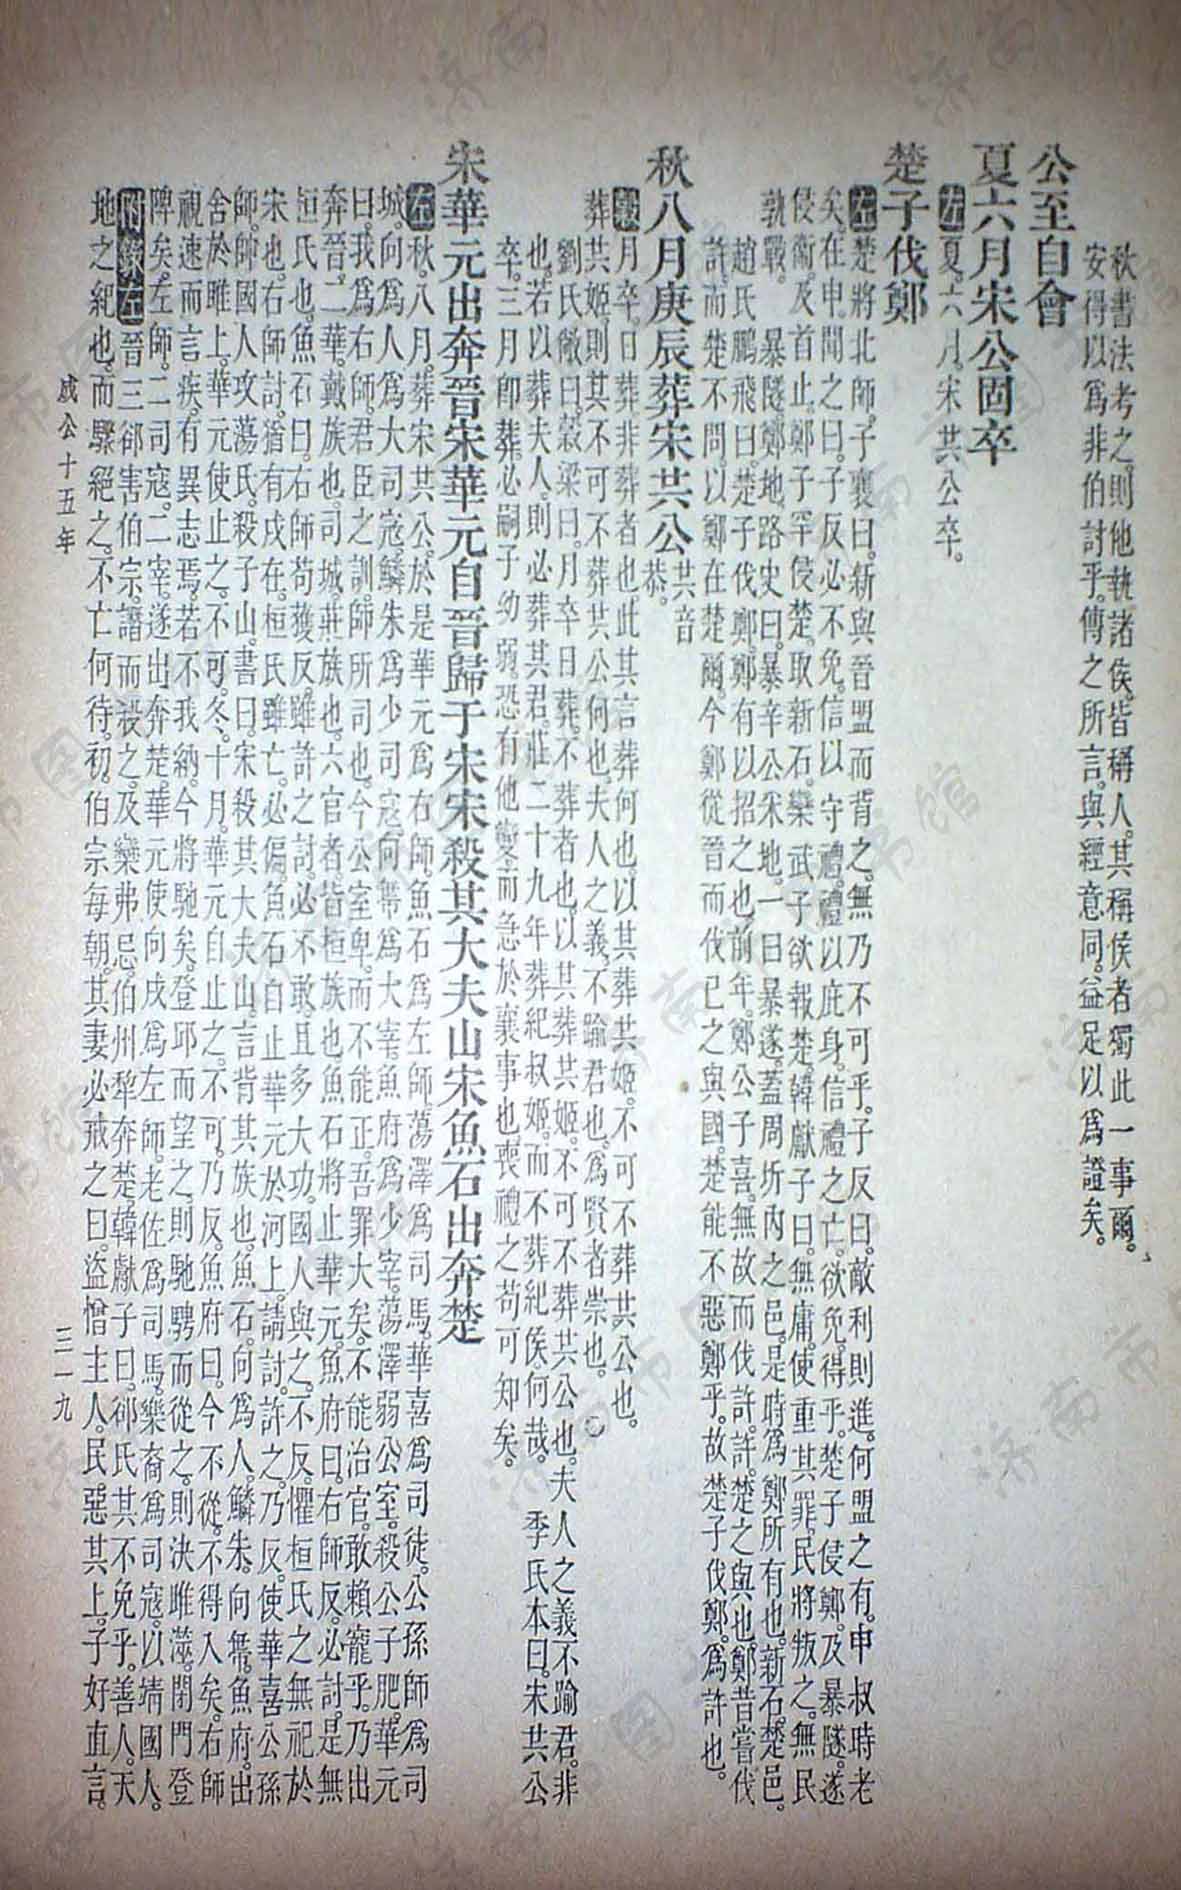 秋書法考之則他執諸侯皆稱人其稱侯者獨此一事爾。
安得以爲非伯討乎。傳之所言與經意同益足以爲證矣。
公至自會
夏六月宋公固卒
左夏。六月。宋共公卒。
楚子伐鄭
左楚將北師。子襄曰。新與晉盟而背之。無乃不可乎。子反曰。敵利則進。何盟之有。申叔時老
矣。在申。聞之曰。子反必不免。信以守禮。禮以庇身。信禮之亡。欲免得乎。楚子侵鄭。及暴隧。遂
侵衛。及首止。鄭子罕侵楚。取新石。欒武子欲報楚。韓獻子曰。無庸。使重其罪。民將叛之。無民
孰戰。　暴隧鄭地。路史曰。暴辛公采地。一曰暴遂。蓋周圻內之邑。是時爲鄭所有也。新石。楚邑。
趙氏鵬飛曰。楚子伐鄭。鄭有以招之也。前年。鄭公子喜。無故而伐許。許。楚之與也。鄭昔嘗伐
許。而楚不問。以鄭在楚爾。今鄭從晉而伐己之與國。楚能不惡鄭乎。故楚子伐鄭。爲許也。
秋八月庚辰葬宋共公共音恭。
穀月卒。日葬。非葬者也。此其言葬何也。以其葬共姬。不可不葬共公也。
葬共姬。則其不可不葬共公何也。夫人之義。不踰君也。爲賢者崇也。〇
劉氏敞曰。穀梁曰。月卒日葬。不葬者也。以其葬共姬。不可不葬共公也。夫人之義不踰君。非
也。若以葬夫人。則必葬其君。莊二十九年葬紀叔姬。而不葬紀侯。何哉。　季氏本曰。宋共公
卒。三月即葬。必嗣子幼弱。恐有他變。而急於襄事也。喪禮之苟可知矣。
宋華元出奔晉宋華元自晉歸于宋宋殺其大夫山宋魚石出奔楚
左秋。八月。葬宋共公。於是華元爲右師。魚石爲左師。蕩澤爲司馬。華喜爲司徒。公孫師爲司
城。向爲人爲大司寇。鱗朱爲少司寇。向帶爲大宰。魚府爲少宰。蕩澤弱公室。殺公子肥。華元
曰。我爲右師。君臣之訓。師所司也。今公室卑。而不能正。吾罪大矣。不能治官。敢賴寵乎。乃出
奔晉。二華。戴族也。司城。莊族也。六官者。皆桓族也。魚石將止華元。魚府曰。右師反。必討。是無
桓氏也。魚石曰。右師苟獲反。雖許之討。必不敢。且多大功。國人與之。不反。懼桓氏之無祀於
宋也。右師討。猶有戌在。桓氏雖亡。必偏。魚石自止華元於河上。請討。許之。乃反。使華喜公孫
師。帥國人攻蕩氏。殺子山。書曰。宋殺其大夫山。言背其族也。魚石。向爲人。鱗朱。向帶。魚府。出
舍於睢上。華元使止之。不可。冬。十月。華元自止之。不可。乃反。魚府曰。今不從。不得入矣。右師
視速而言疾。有異志焉。若不我納。今將馳矣。登邱而望之。則馳。騁而從之。則決睢澨。閉門登
陴矣。左師。二司寇。二宰。遂出奔楚。華元使向戌爲左師。老佐爲司馬。樂裔爲司寇。以靖國人。
附錄左晉三郤害伯宗。譖而殺之。及欒弗忌。伯州犁奔楚。韓獻子曰。郤氏其不免乎。善人。天
地之紀也。而驟絕之。不亡何待。初。伯宗每朝。其妻必戒之曰。盜憎主人。民惡其上。子好直言。
成公十五年
三一九